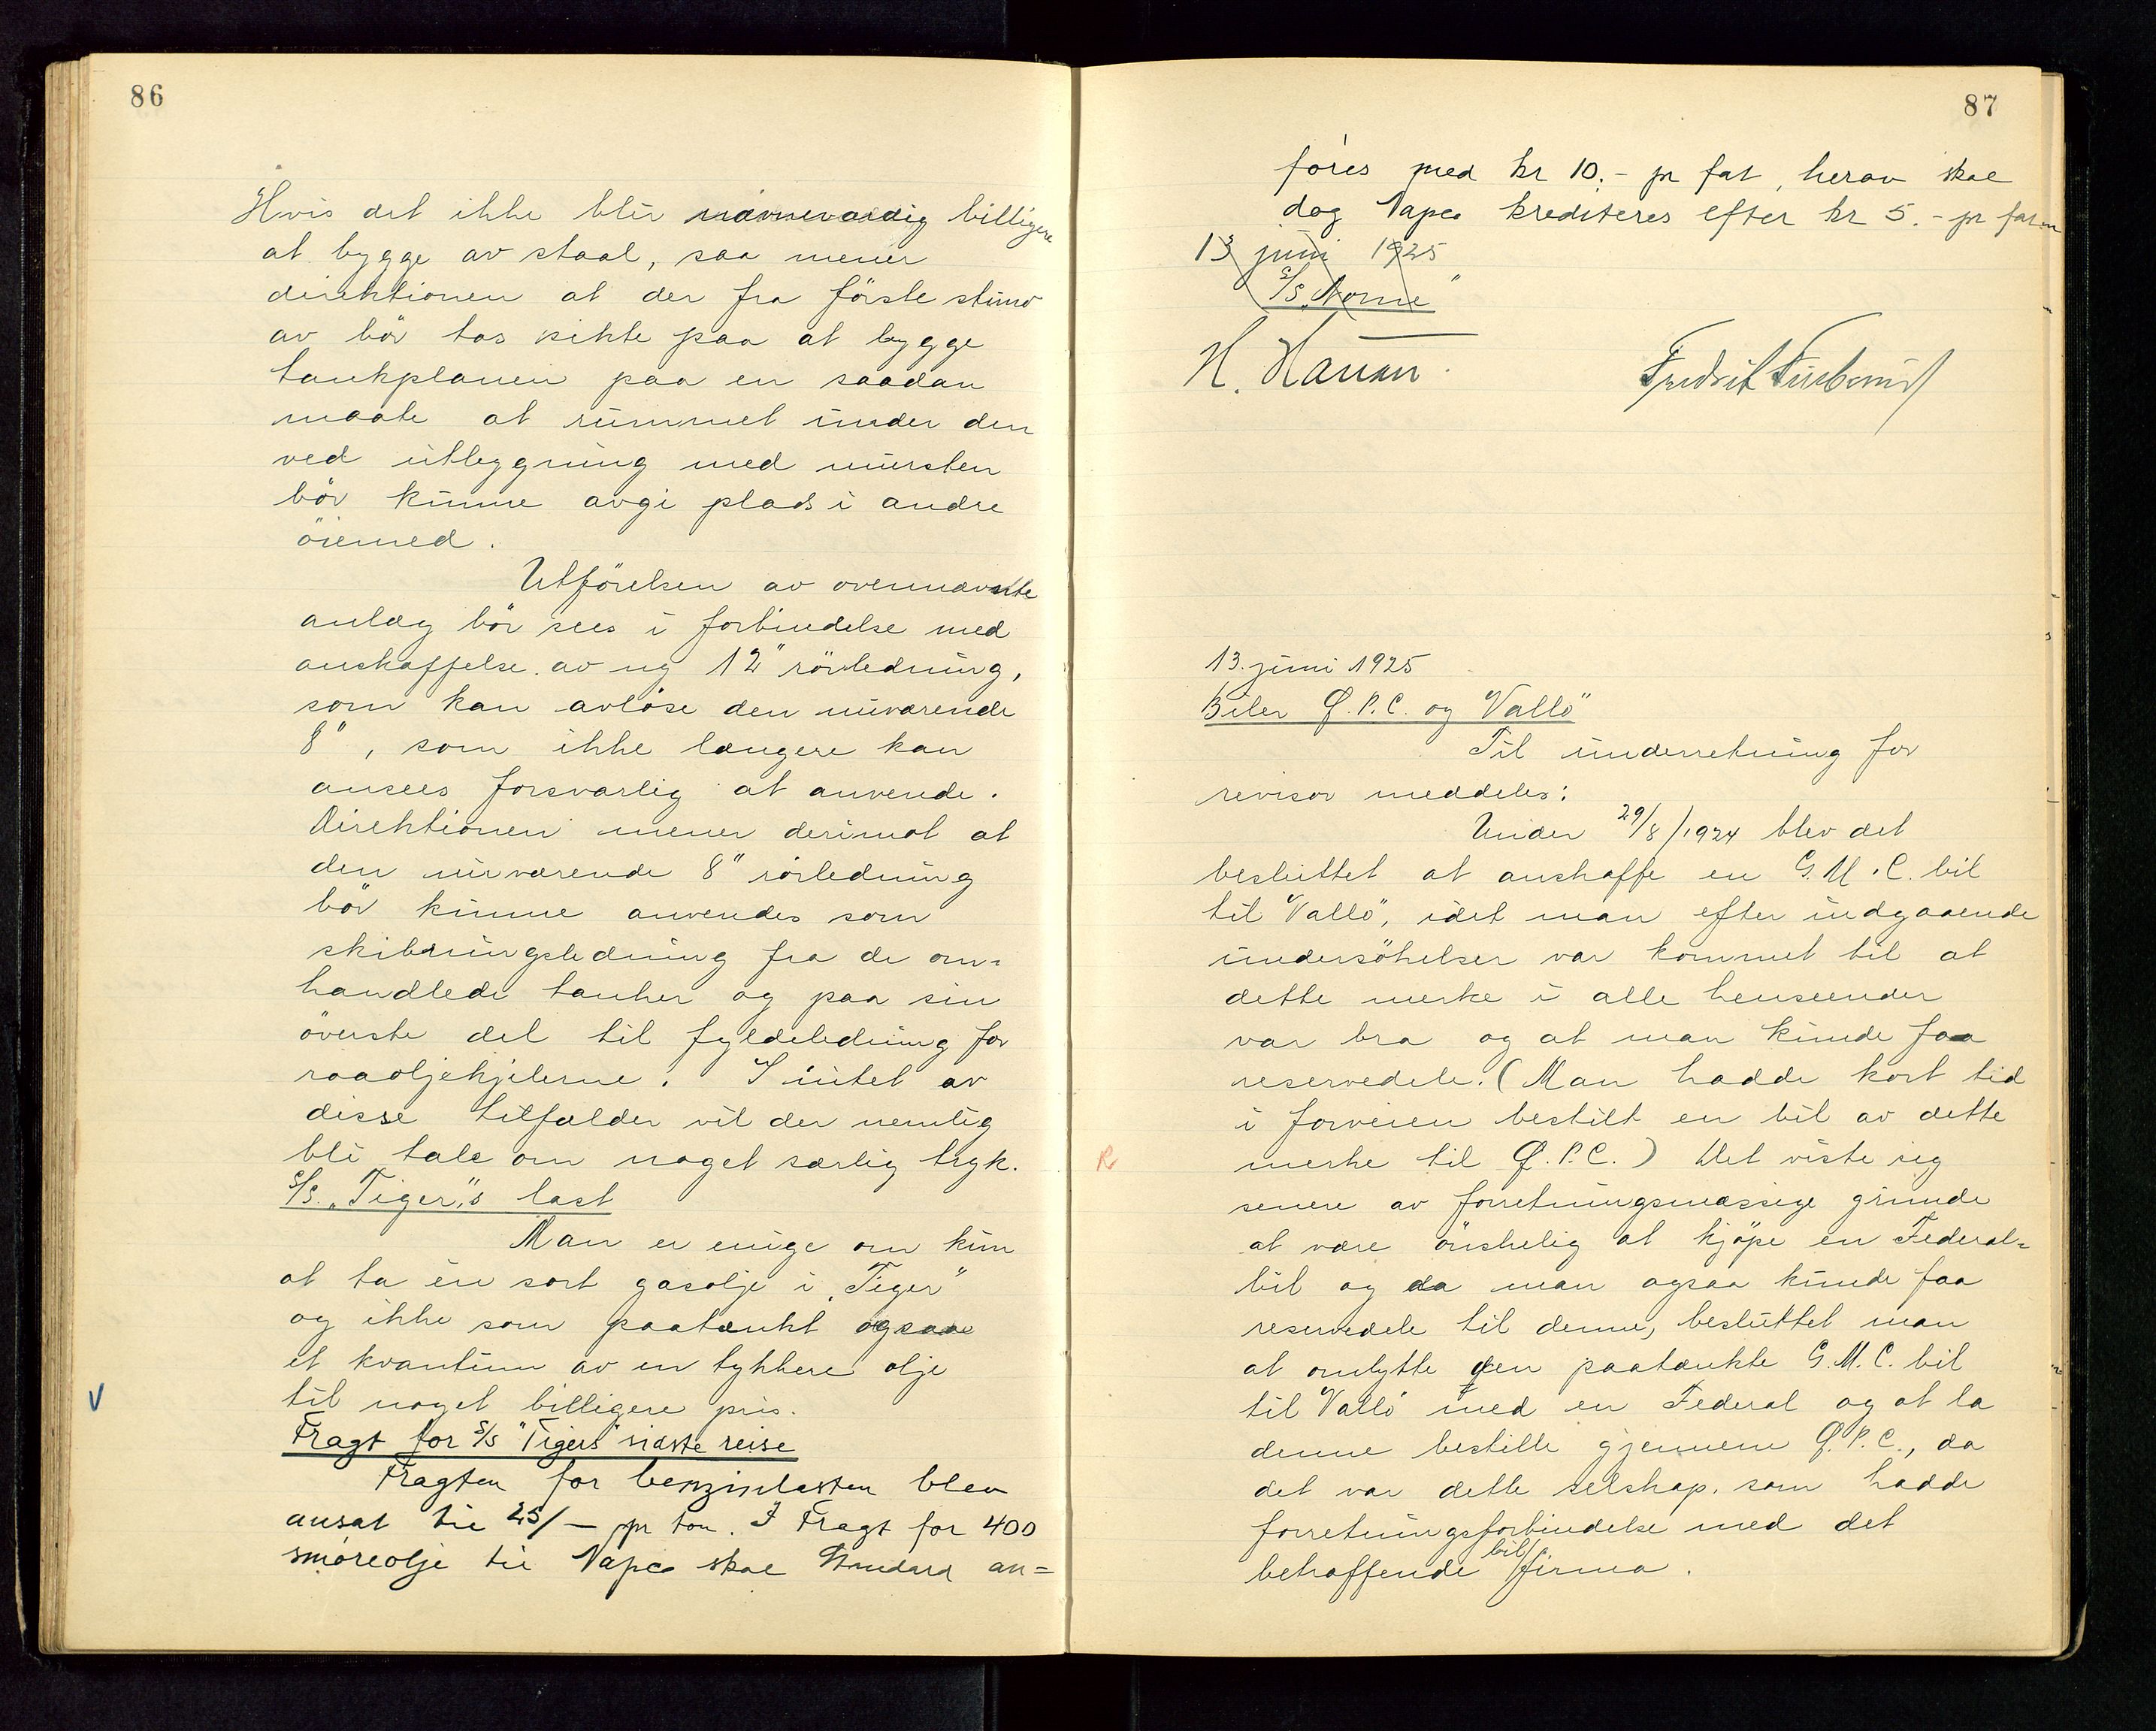 86
Hvis det ikke blir nævneværdig billigere
at bygge av staal, saa mener
direktionen at der fra förste stund
av bör tas sikte paa at bygge
tankplanen paa en saadan
maate at rummet under den
ved utbygning med mursten
bör kunne avgi plads i andre
öiemed.
Utförelsen av ovennævnte
anlæg bör sees i forbindelse med
anskaffelse av ny 12" rörledning,
som kan avlöse den nuværende
8", som ikke længere kan
ansees forsvarlig at anvende.
Direktionen mener derimot at
den nuværende 8" rörledning
bör kunne anvendes som
skibningsledning fra de om=
handlede tanker og paa sin
överste del til fyldeledning for
raaoljekjelerne. I intet av
disse tilfælder vil der nemlig
bli tale om noget særlig tryk.
S/S. "Tiger"s last
Man er enige om kun
at ta én sort gasolje i "Tiger"
og ikke som paatænkt ogsaa
et kvantum av en tykkere olje
til noget billigere pris.
Fragt for S/S "Tigers" sidste reise
Fragten for benzinlasten blev
ansat til 25/- pr ton. I Fragt for 400
smöreolje til Vapco skal Standard an=
87
föres med kr 10.- pr fat, herav skal
dog Vapco krediteres efter kr 5.- pr fat
13 juni 1925
S/S "Norne"
H. Hansen
Fredrik
13. juni 1925
Biler Ö.P.C. og "Vallö"
Til underretning for
revisor meddeles:
Under 29/8/1924 blev det
besluttet at anskaffe en G.M.C. bil
til "Vallö", idet man efter indgaaende
undersökelser var kommet til at
dette merke i alle henseender
var bra og at man kunde faa
reservedele. (Man hadde kort tid
i forveien bestilt en bil av dette
R merke til Ö.P.C.) Det viste sig
senere av forretningsmæssige grunde
at være önskelig at kjöpe en Federal=
bil og da man ogsaa kunde faa
reservedele til denne, besluttet man
at ombytte den paatænkte G.M.C. bil
til Vallö med en Federal og at la
denne bestille gjennem Ö.P.C., da
det var dette selskap, som hadde
forretningsforbindelse med det
betræffende bilfirma.